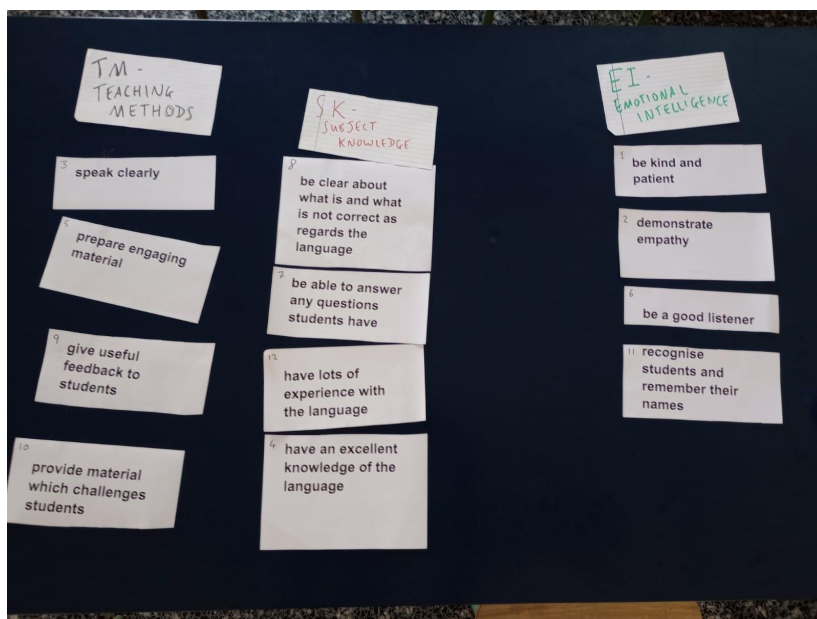 TM -
TEACHING
METHODS
3
speak clearly
5
prepare engaging
material
9
give useful
feedback to
students
10
provide material
which challenges
students
SK -
SUBJECT
KNOWLEDGE
8
be clear about
what is and what
is not correct as
regards the
language
7
be able to answer
any questions
students have
12
have lots of
experience with
the language
4
have an excellent
knowledge of the
language
EI -
EMOTIONAL
INTELLIGENCE
1
be kind and
patient
2
demonstrate
empathy
6
be a good listener
11
recognise
students and
remember their
names